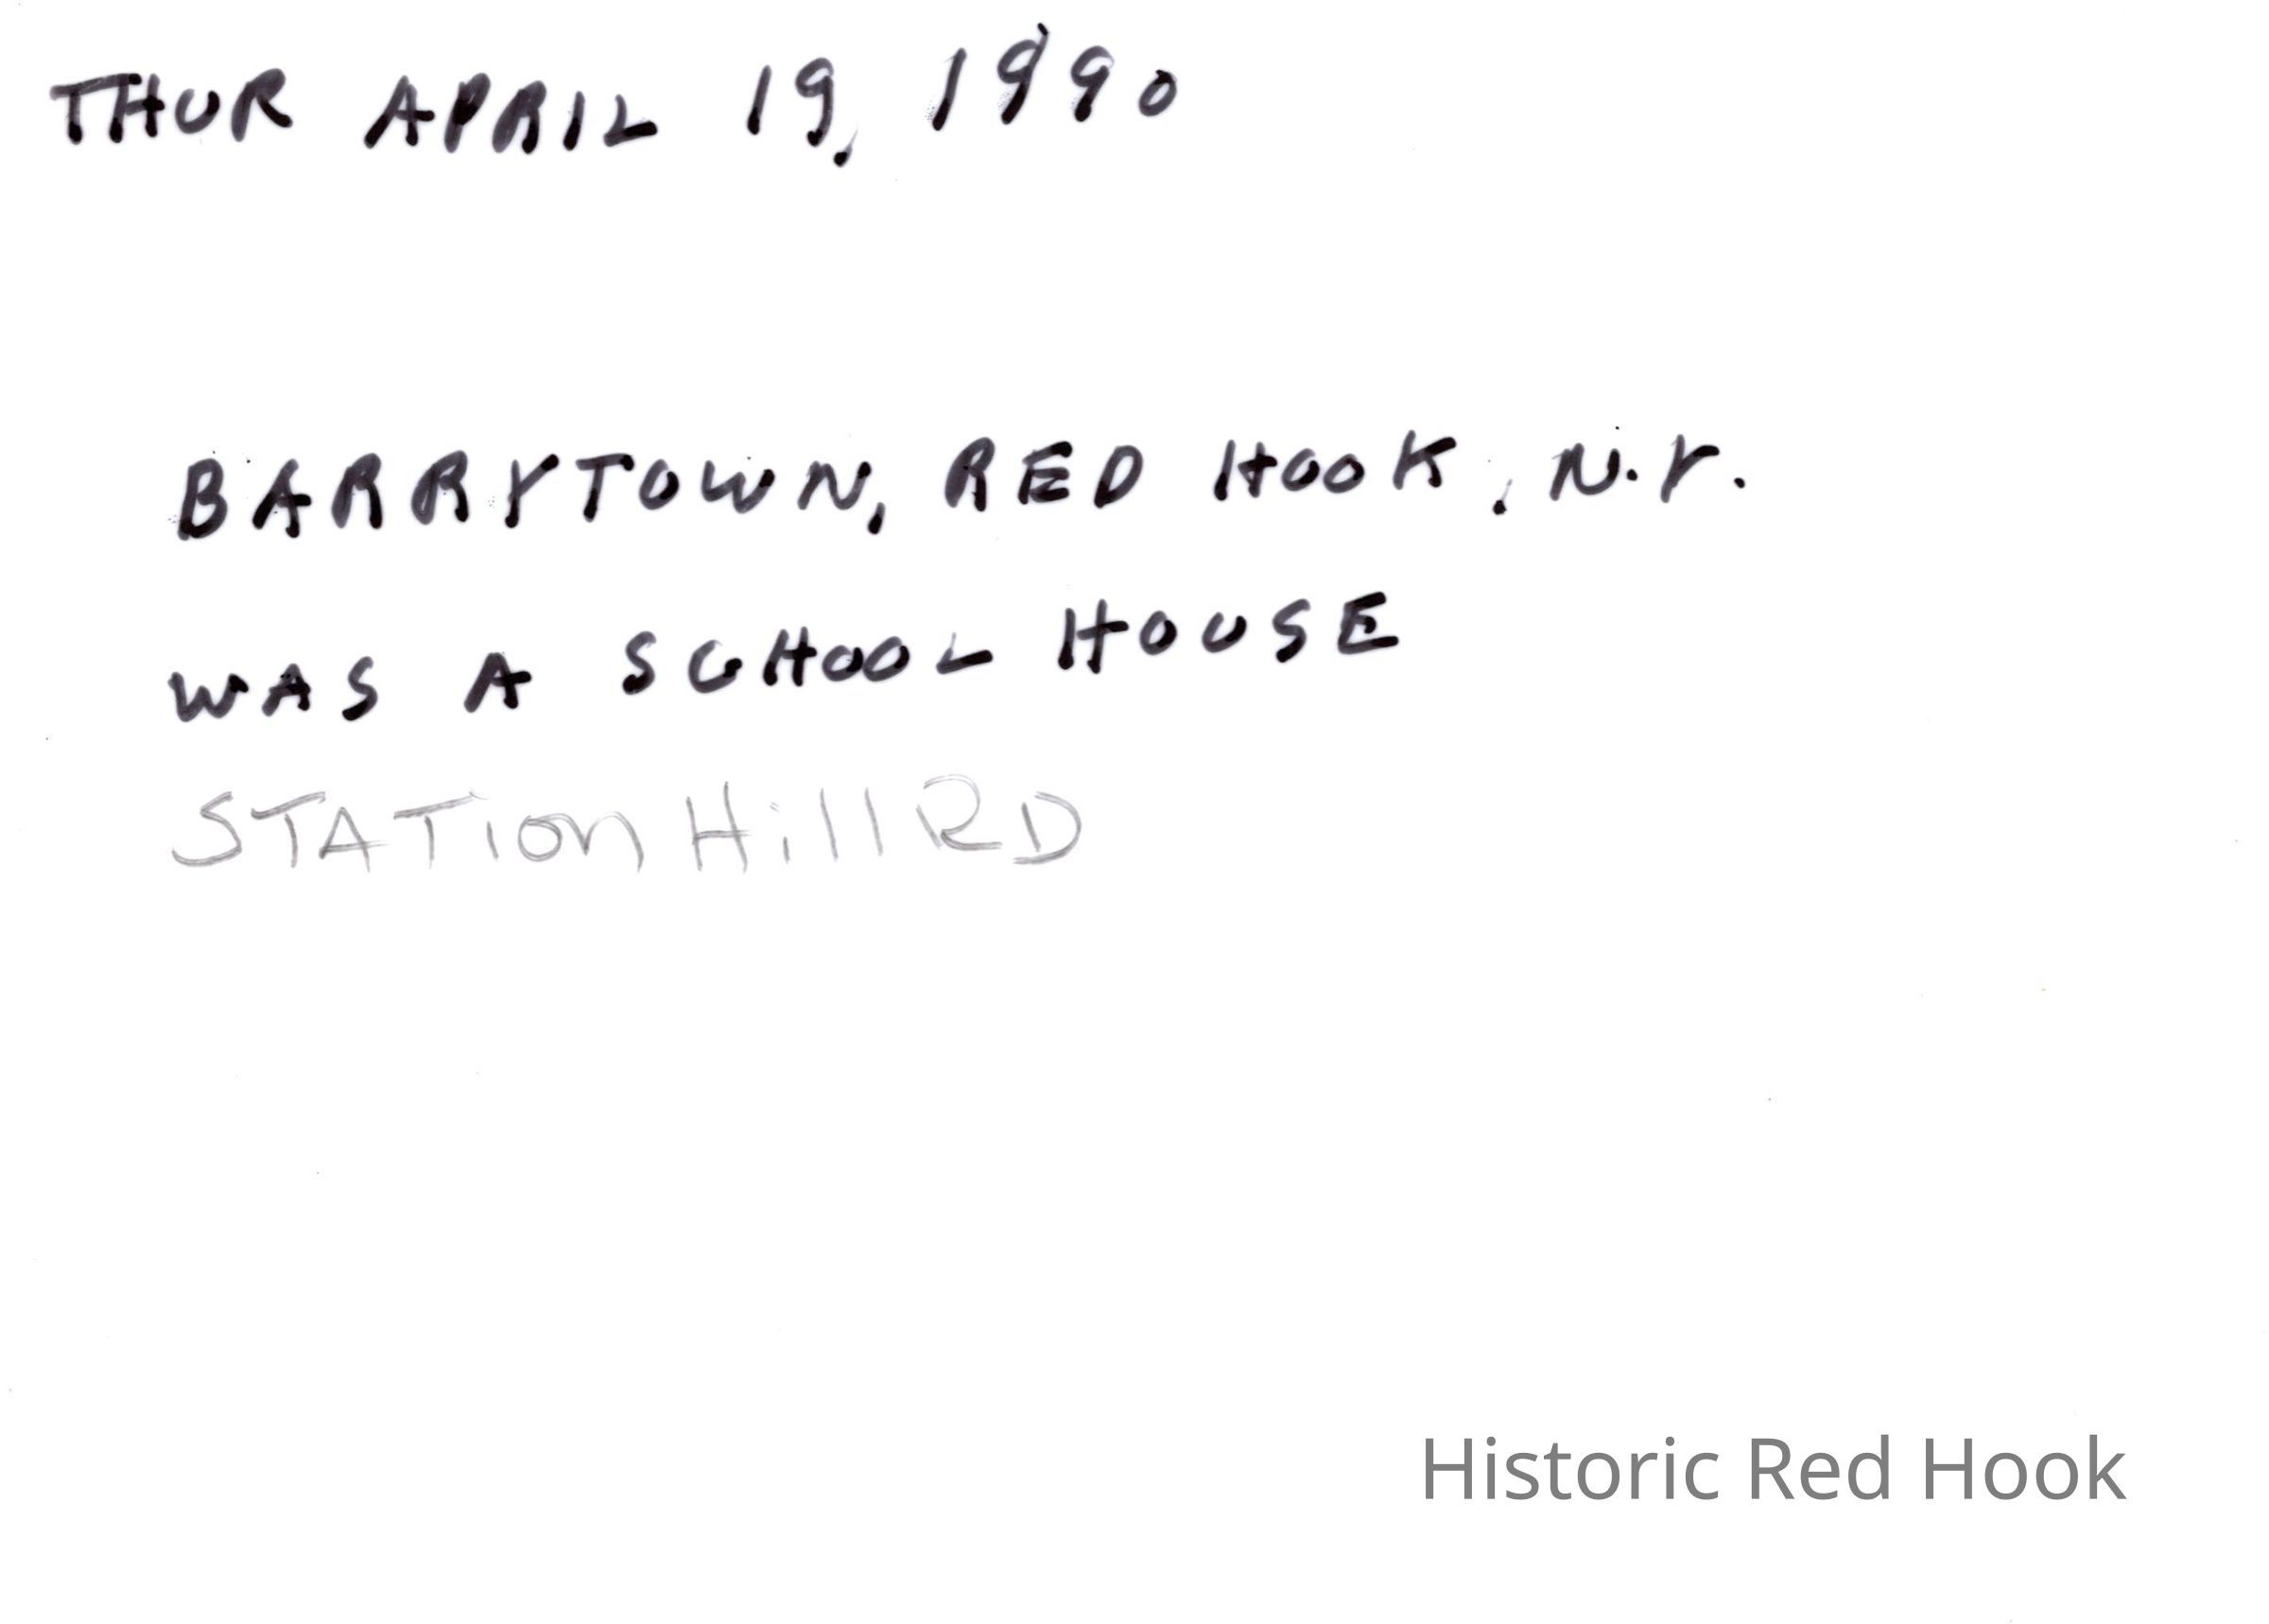 THUR APRIL 19, 1990
BARRYTOWN, RED HOOK, N.Y.
WAS A SCHOOL HOUSE
STATion Hill RD
Historic Red Hook